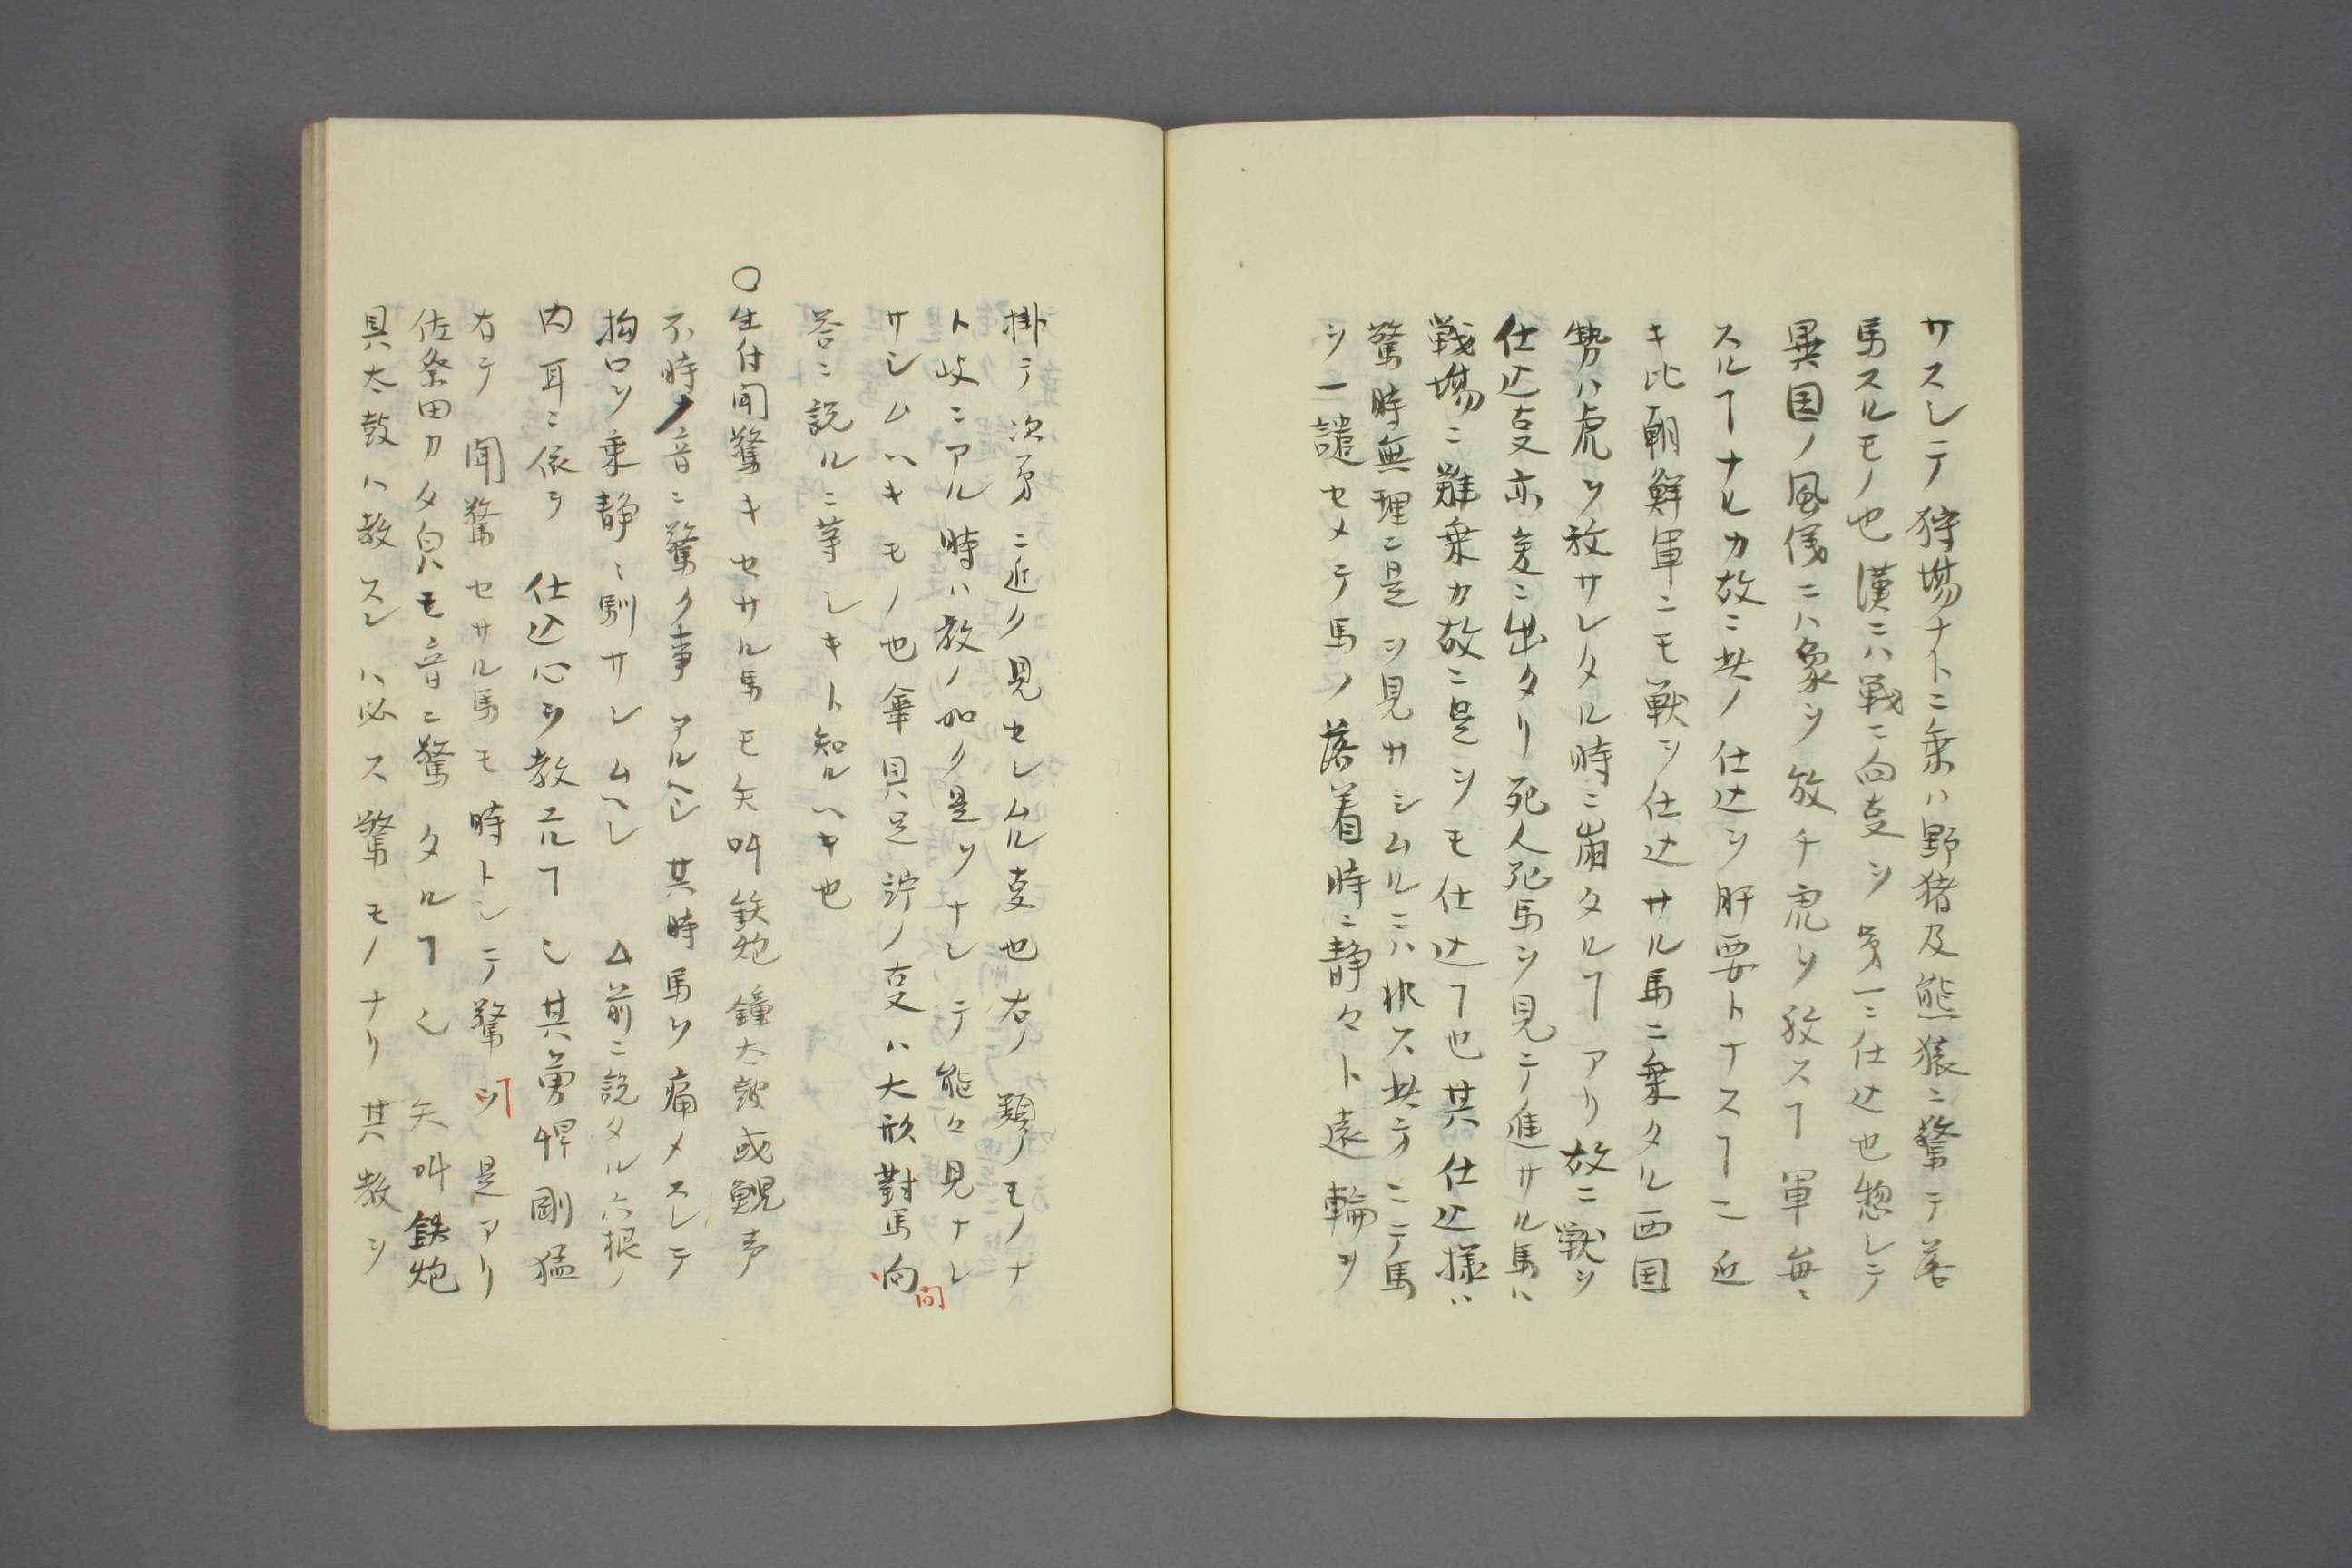 サスレテ狩場ナトニ乗ハ野猪及熊猿ニ驚テ落
馬スルモノ也漢ニハ戦ニ向叓ヲ第一ニ仕込也惣レテ
異国ノ風儀ニハ象ヲ放チ虎ヲ放スヿ軍毎ニ
スルヿナルカ故ニ此ノ仕込ヲ肝要トナスヿニ近
キ比朝鮮軍ニモ獣ヲ仕込サル馬ニ乗タル西国
勢ハ虎ヲ放サレタル時ニ崩タルヿアリ故ニ獣ヲ
仕込叓亦爰ニ出タリ死人死馬ヲ見テ進サル馬ハ
戦場ニ難乗カ故ニ是ヲモ仕込ヿ也其仕込様ハ
驚時無理ニ是ヲ見サシムルニハ非ス此方ニテ馬
ヲ一譴セメテ馬ノ落着時ニ静々ト遠輪ヲ
掛テ次第ニ近ク見セレムル叓也右ノ類ノモノナ
ト岐ニアル時ハ教ノ如ク是ヲナレテ能々見ナレ
サシムヘキモノ也傘具足ノ叓ハ大形對馬向
問
答ニ説ルニ等レキト知ルヘキ也
〇生付聞驚キセサル馬モ矢叫鉄炮鐘太鼓或鯢声
不時ノ音ニ驚ク事アルヘシ其時馬ヲ痛メスレテ
拘口ヲ乗静ニ馴サレムヘレ △前ニ説タル六根ノ
内耳ニ依テ仕込心ヲ教エルヿ也其勇悍剛猛
有テ聞驚セサル馬モ時トレテ驚ヿ是アリ
佐祭田カタ白ハモ音ニ驚タルヿ也矢叫鉄炮
具太鼓ハ教スレハ必ス驚モノナリ其教ヲ